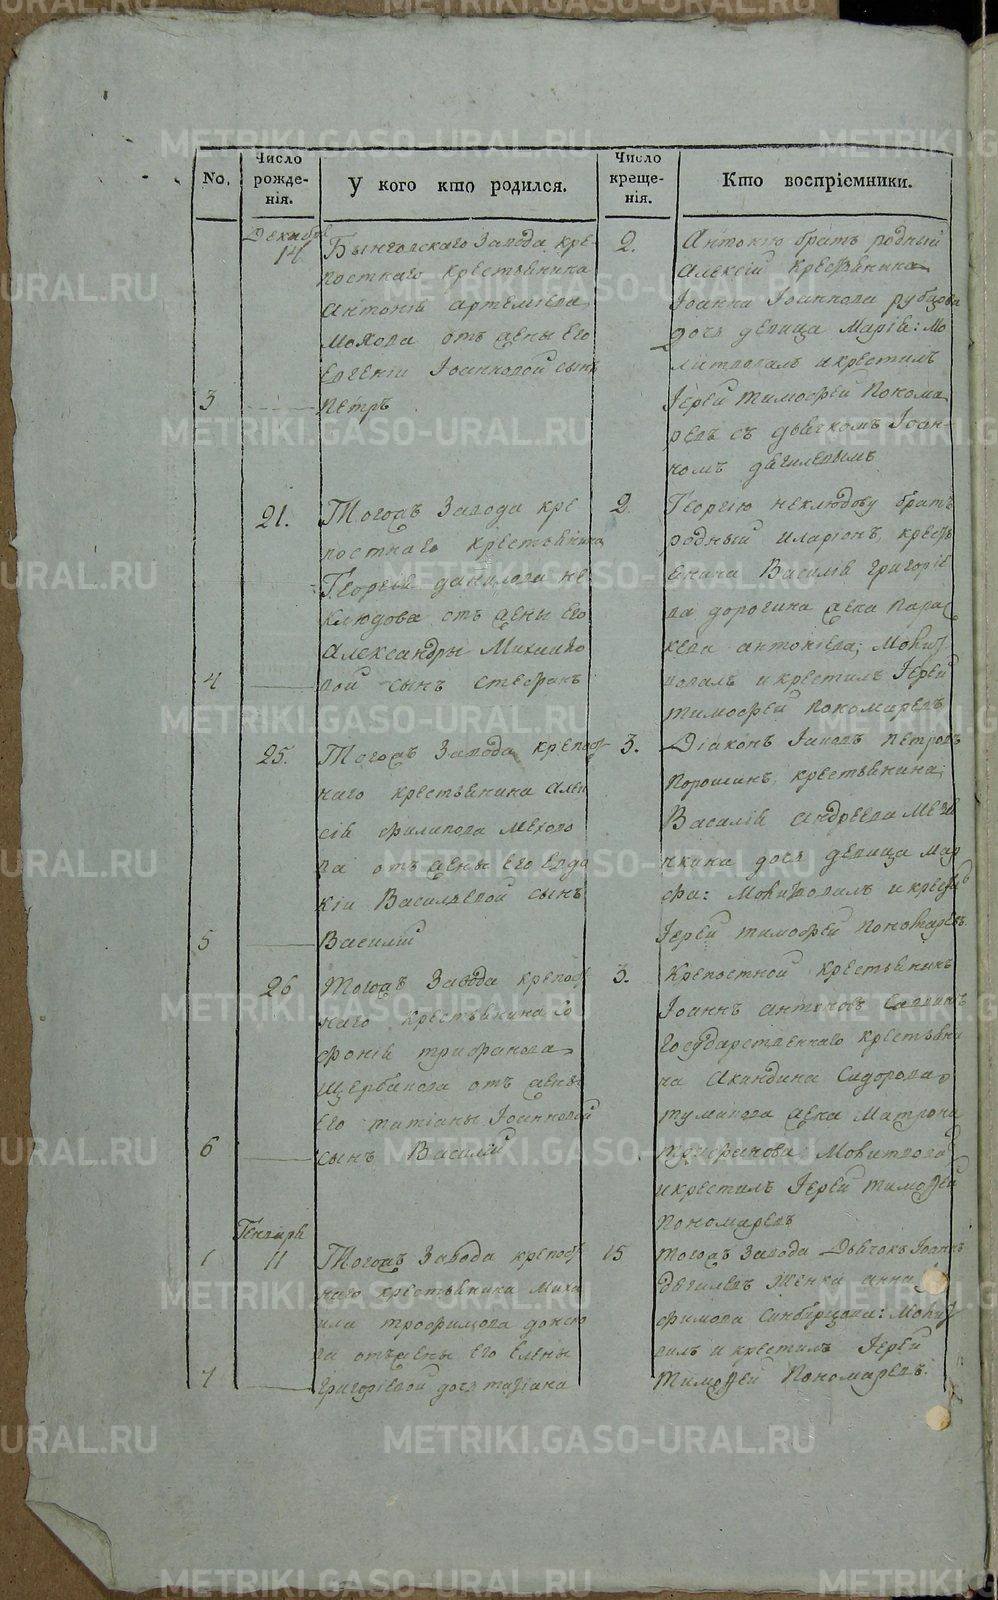 No.
Число рожде-нія.
У кого кто родился.
Число креще-нія.
Кто воспріемники.
Декабрь
14
Бынговскаго Завода кре-
постнаго крестьянина
Антонія Артемьева
Мохова отъ жены его
Евгеніи Іоанновой сынъ
3
Петръ
2.
Антонію братъ родный
Алексій крестьянина
Іоанна Іоаннова рубцова
дочь девица Марія: Мо
литвовалъ и крестилъ
Іерей тимофей Понома
ревъ съ дьячкомъ Іоан-
номъ дягилевымъ
21.
Тогожъ Завода кре
постнаго крестьянина
Георгія данилова не
клюдова отъ жены его
Александры Михайло
4
вой сынъ стефанъ
2
Георгію неклюдову братъ
родный иларіонъ, кресть
янина Василія григорье
ва дорогина жена пара
кева антониева; Молит
вовалъ и крестилъ Іерей
тимофей пономаревъ
25.
Тогожъ Завода крепост-
наго крестьянина Алек
сія филипова Мехово
ва отъ жены его евдо
кіи Васильевой сынъ
5
Василій
3.
Діаконъ Іаковъ петровъ
Порошинъ, крестьянина,
Василія андреева
дочь девица Мар
фа: Молитвовалъ и крестилъ
Іерей тимофей пономаревъ
26
Тогожъ Завода крепост
наго крестьянина Со
фонія трифанова
щербакова отъ жены
его татіаны Іоанновой
6
сынъ Василій
3.
Крепостной крестьянинъ
Іоаннъ антоновъ
государственнаго крестьяни
на Акиндина Сидорова
туманова жена Матрона
трифанова Молитвова
и крестилъ Іерей тимофей
пономаревъ
Генваря
1
11
Тогожъ Завода крепост
наго крестьянина Миха
ила трофимова
ва отъ жены его Елены
1
григорьевой дочь татіана
15
тогожъ Завода Дьячокъ Іоаннъ
дягилевъ Женка анна
фимова Синбирцова: Молит
валъ и крестилъ Іерей
тимофей Пономаревъ.
METRIKI.GASO-URAL.RU